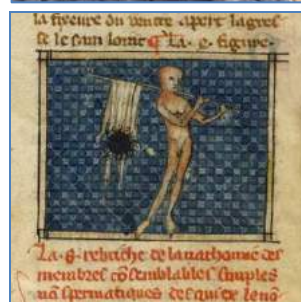 la figure du ventre apert la gres
se le sain lome ¶ La .e. figure.
La .8. rebriche de la nathomie des
membres cõsemblables simples
nõ spermatiques